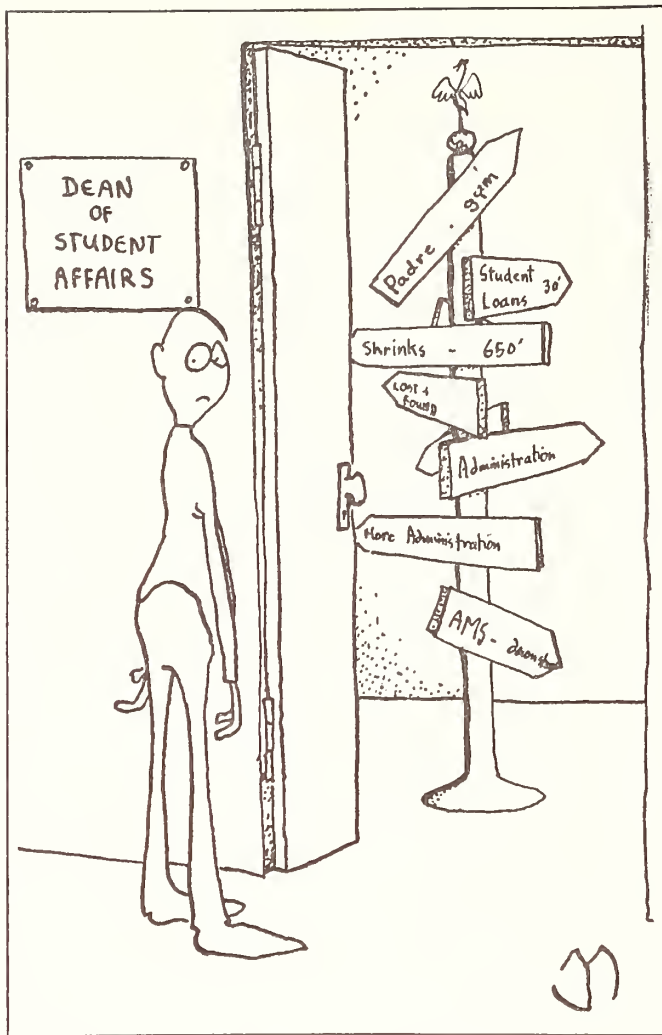 DEAN
OF
STUDENT
AFFAIRS
Padre . gym
Student
Loans 30'
Shrinks - 650'
LOST &
FOUND
Administration
More Administration
AMS -